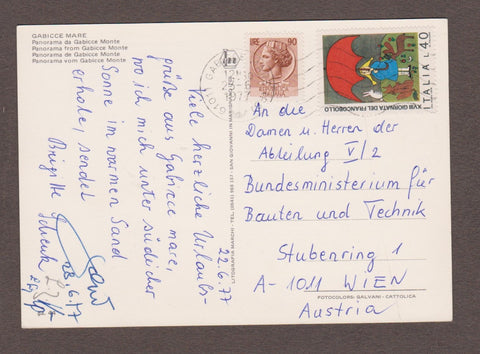 GABICCE MARE
Panorama da Gabicce Monte
Panorama from Gabicce Monte
Panorama de Gabicce Monte
Panorama vom Gabicce Monte
22.6.77
Viele herzliche Urlaubs-
grüße aus Gabicce mare,
wo ich mich unter südlicher
Sonne im warmen Sand
erhole, sendet
Brigitte
Schenk
28.6.77
LITOGRAFIA MARCHI - TEL. (0541) 963 137 - SAN GIOVANNI IN MAR
80
1977
ITALIA L40
XVIII GIORNATA DEL FRANCOBOLLO
An die
Damen u. Herren der
Abteilung V/2
Bundesministerium für
Bauten und Technik
Stubenring 1
A-1011 WIEN
Austria
FOTOCOLORS: GALVANI - CATTOLICA